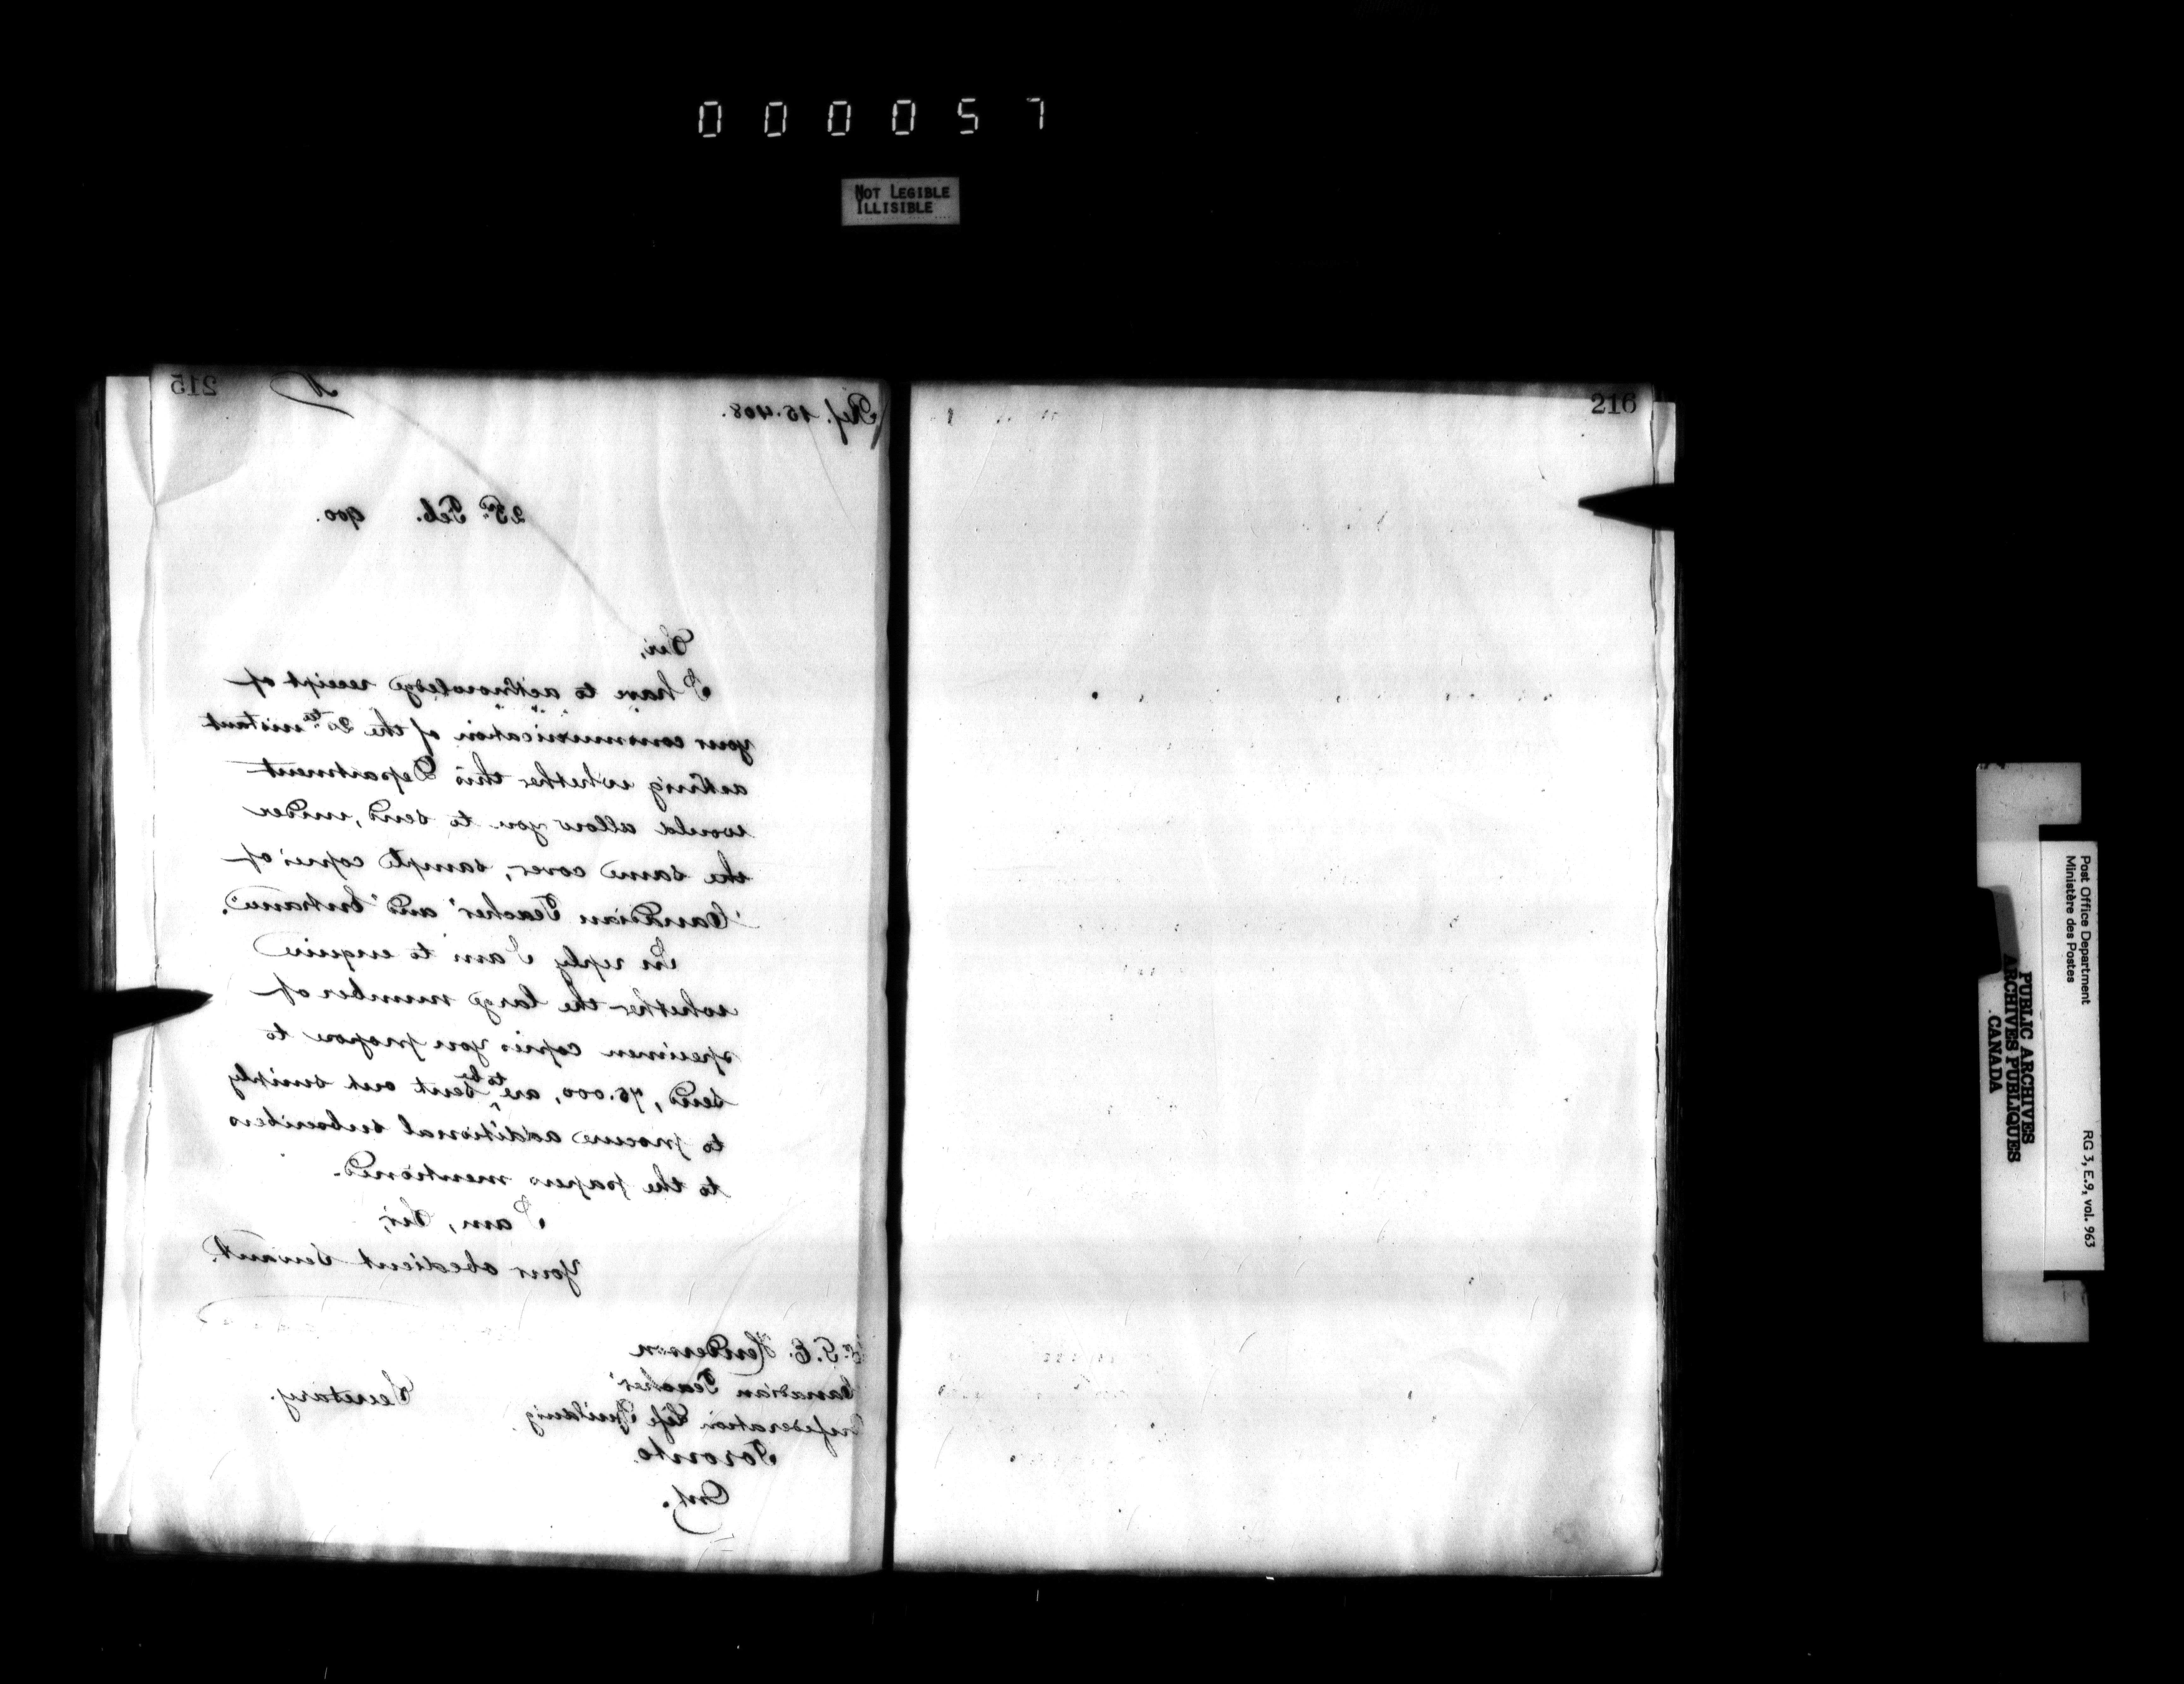 000057
NOT LEGIBLE
ILLISIBLE
215
Ref. 15.408.
23rd Feb. 900.
Sir,
I have to acknowledge receipt of
your communication of the 20th instant
asking whether this Department
would allow you to send, under
the same cover, sample copies of
"Canadian Teacher" and "Entrance".
In reply I am to enquire
whether the large number of
specimen copies you propose to
send, 75.000, are to be sent out simply
to procure additional subscribers
to the papers mentioned.
I am, Sir,
Your obedient Servant.
Secretary.
G. E. Henderson
Canadian Teacher
Confederation Life Building,
Toronto.
Ont.
216
Post Office Department
Ministère des Postes
RG 3, E.9, vol. 963
PUBLIC ARCHIVES
ARCHIVES PUBLIQUES
CANADA